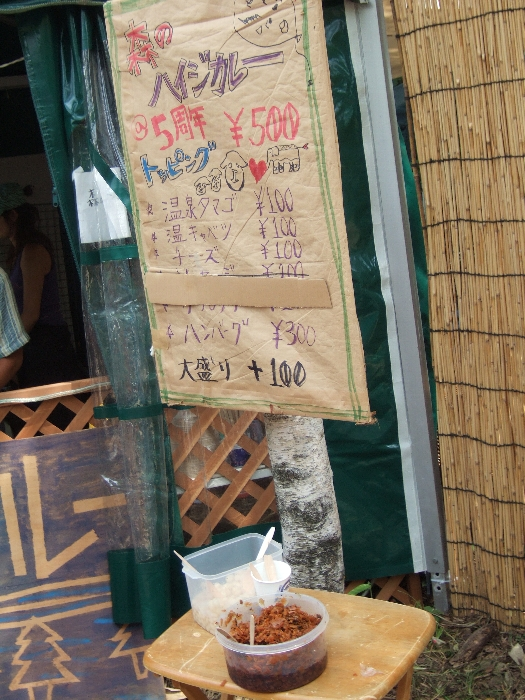 森の
ハイジカレー
5周年 ¥500
トッピング
温泉タマゴ ¥100
温キャベツ ¥100
チーズ ¥100
ハンバーグ ¥300
大盛り +100
ルー